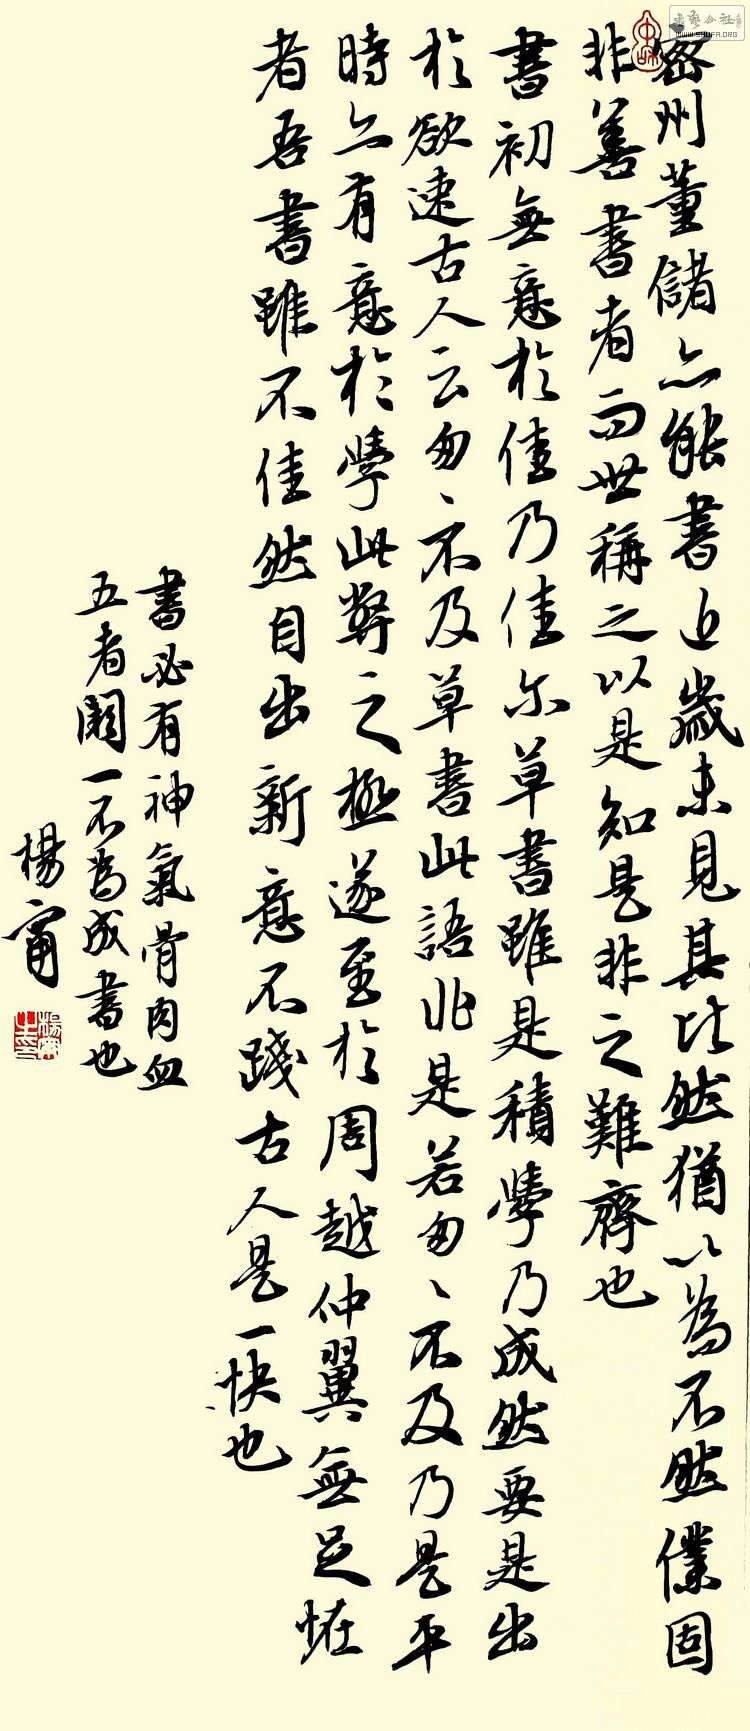 密州董儲亦能書近歲未見其比然猶以為不然僕固
非善書者而世稱之以是知是非之難齊也
書初無意於佳乃佳尔草書雖是積學乃成然要是出
於欲速古人云匆匆不及草書此語非是若匆匆不及乃是平
時亦有意於學此弊之極遂至於周越仲翼無足怪
者吾書雖不佳然自出新意不踐古人是一快也
書必有神氣骨肉血
五者闕一不為成書也
楊甯
書藝公社
WWW.SHUFA.ORG